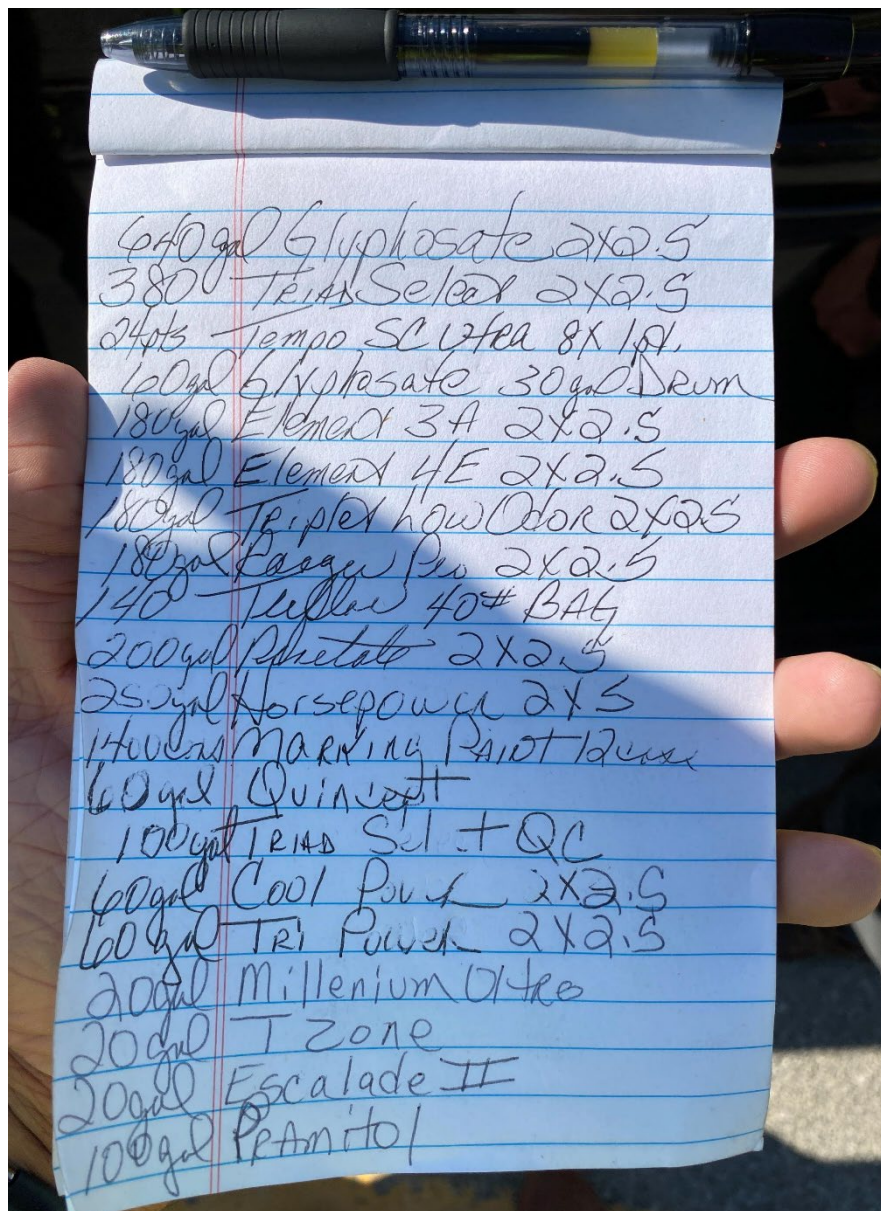 640gal Glyphosate 2X2.5
380 TRIAD Select 2X2.5
24pts Tempo SC Ultra 8X 1pt.
60gal Glyphosate 30gal Drum
180gal Element 3A 2X2.5
180gal Element 4E 2X2.5
180gal Triplet Low Odor 2X2.5
180gal Ranger Pro 2X2.5
140 40# BAG
200gal 2X2.5
250gal Horsepower 2X5
MARKING PAINT 12
60gal Quincept
100gal TRIAD Select QC
60gal Cool Power 2X2.5
60gal TRI Power 2X2.5
20gal Millenium Ultra
20gal T Zone
20gal Escalade II
100gal PRAmitol